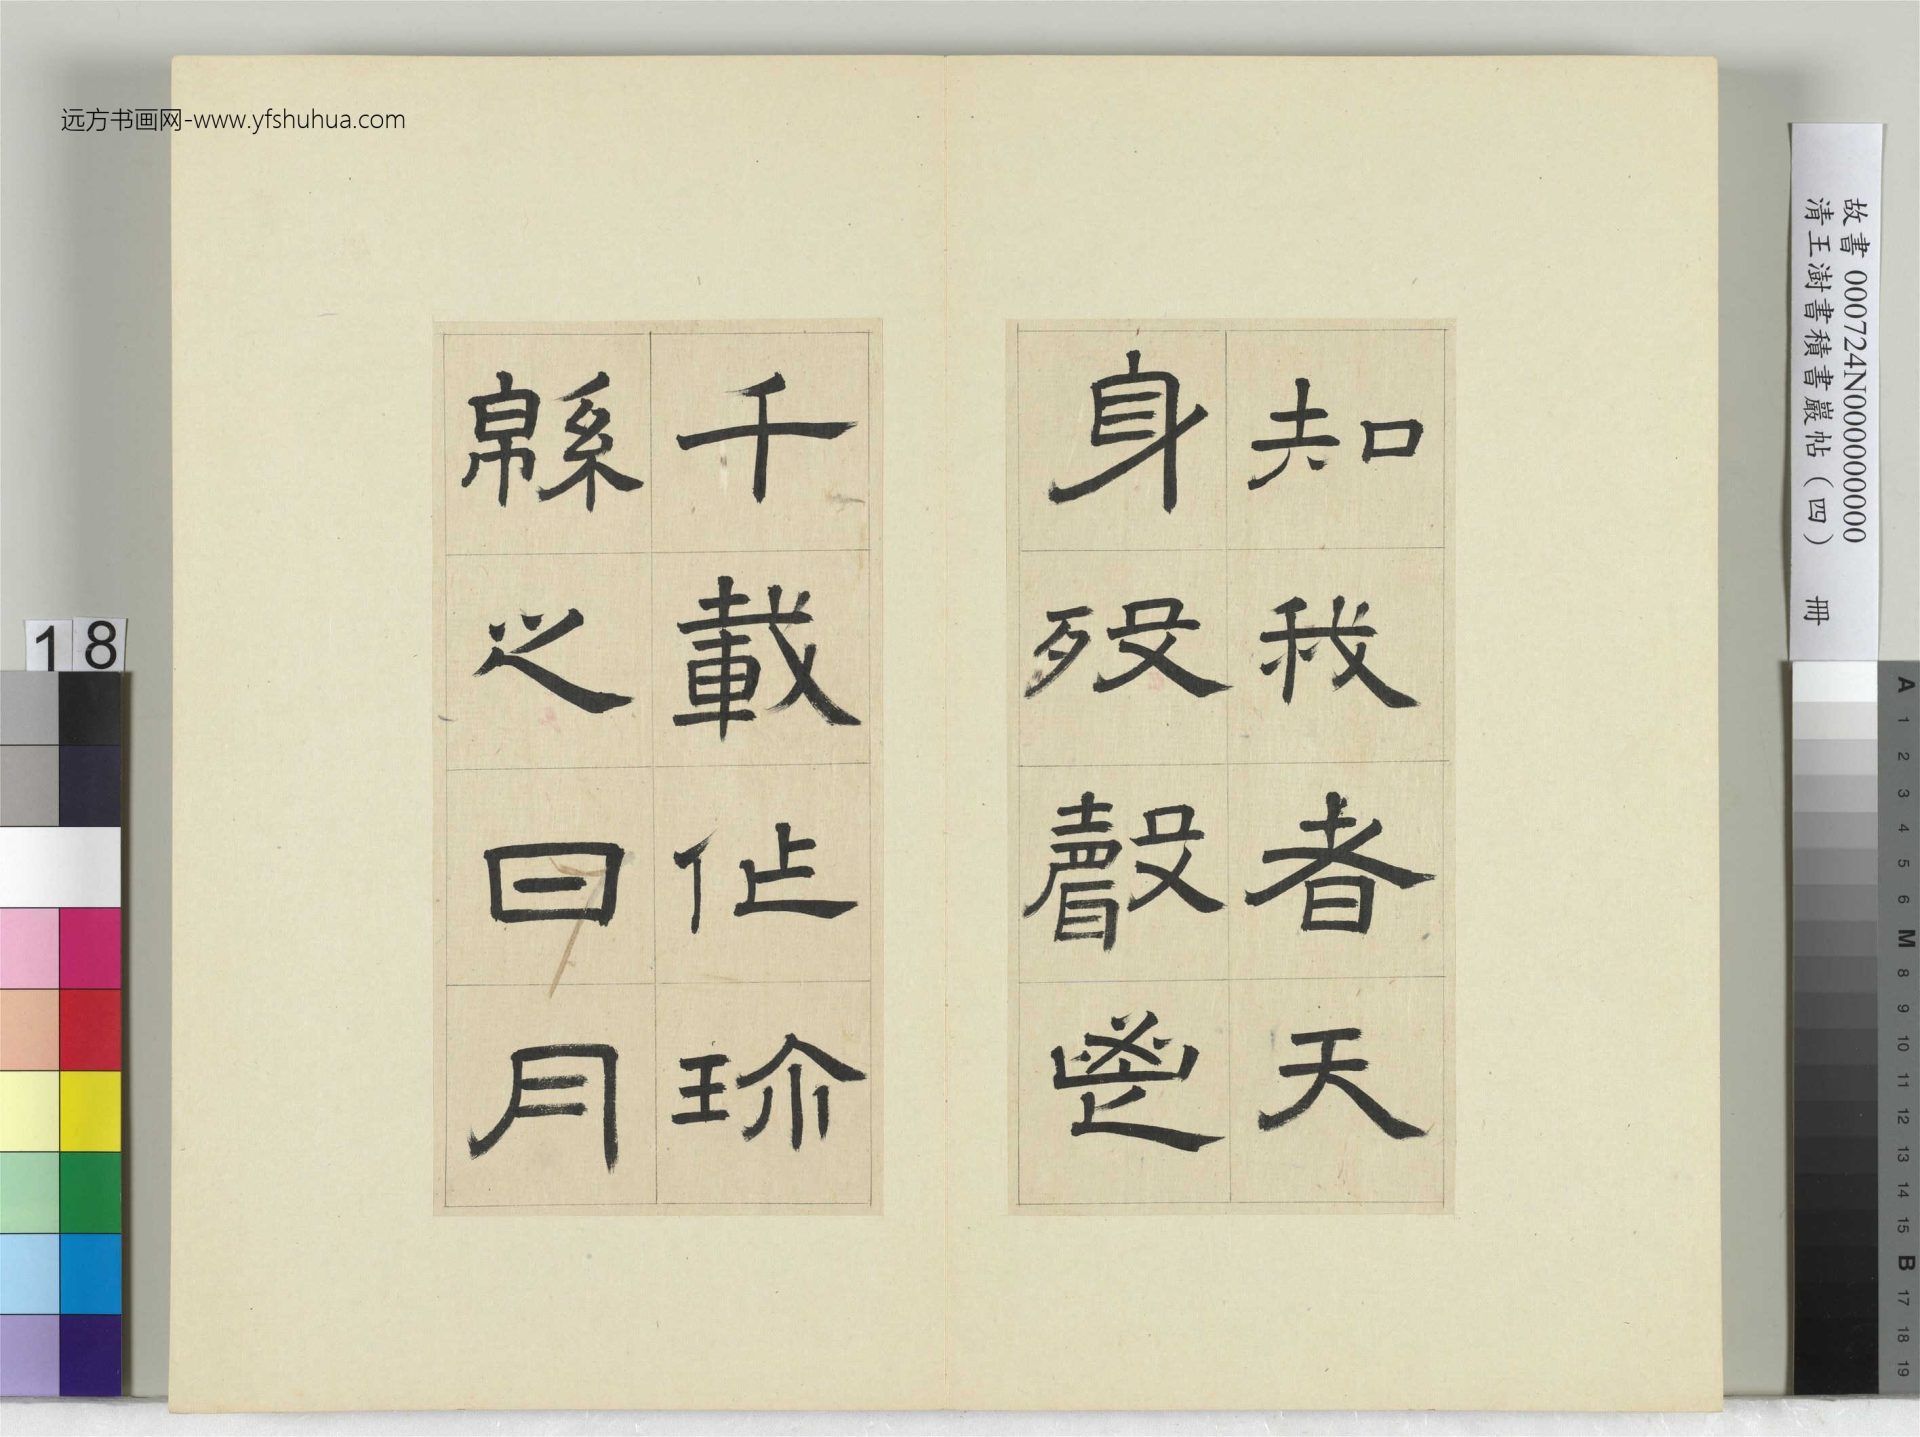 远方书画网-www.yfshuhua.com
知我者天
身歿聲鬯
千載作珍
緜之日月
故書 000724N000000000
清王澍書積書巖帖（四） 冊
18
A 1 2 3 4 5 6 M 8 9 10 11 12 13 14 15 B 17 18 19